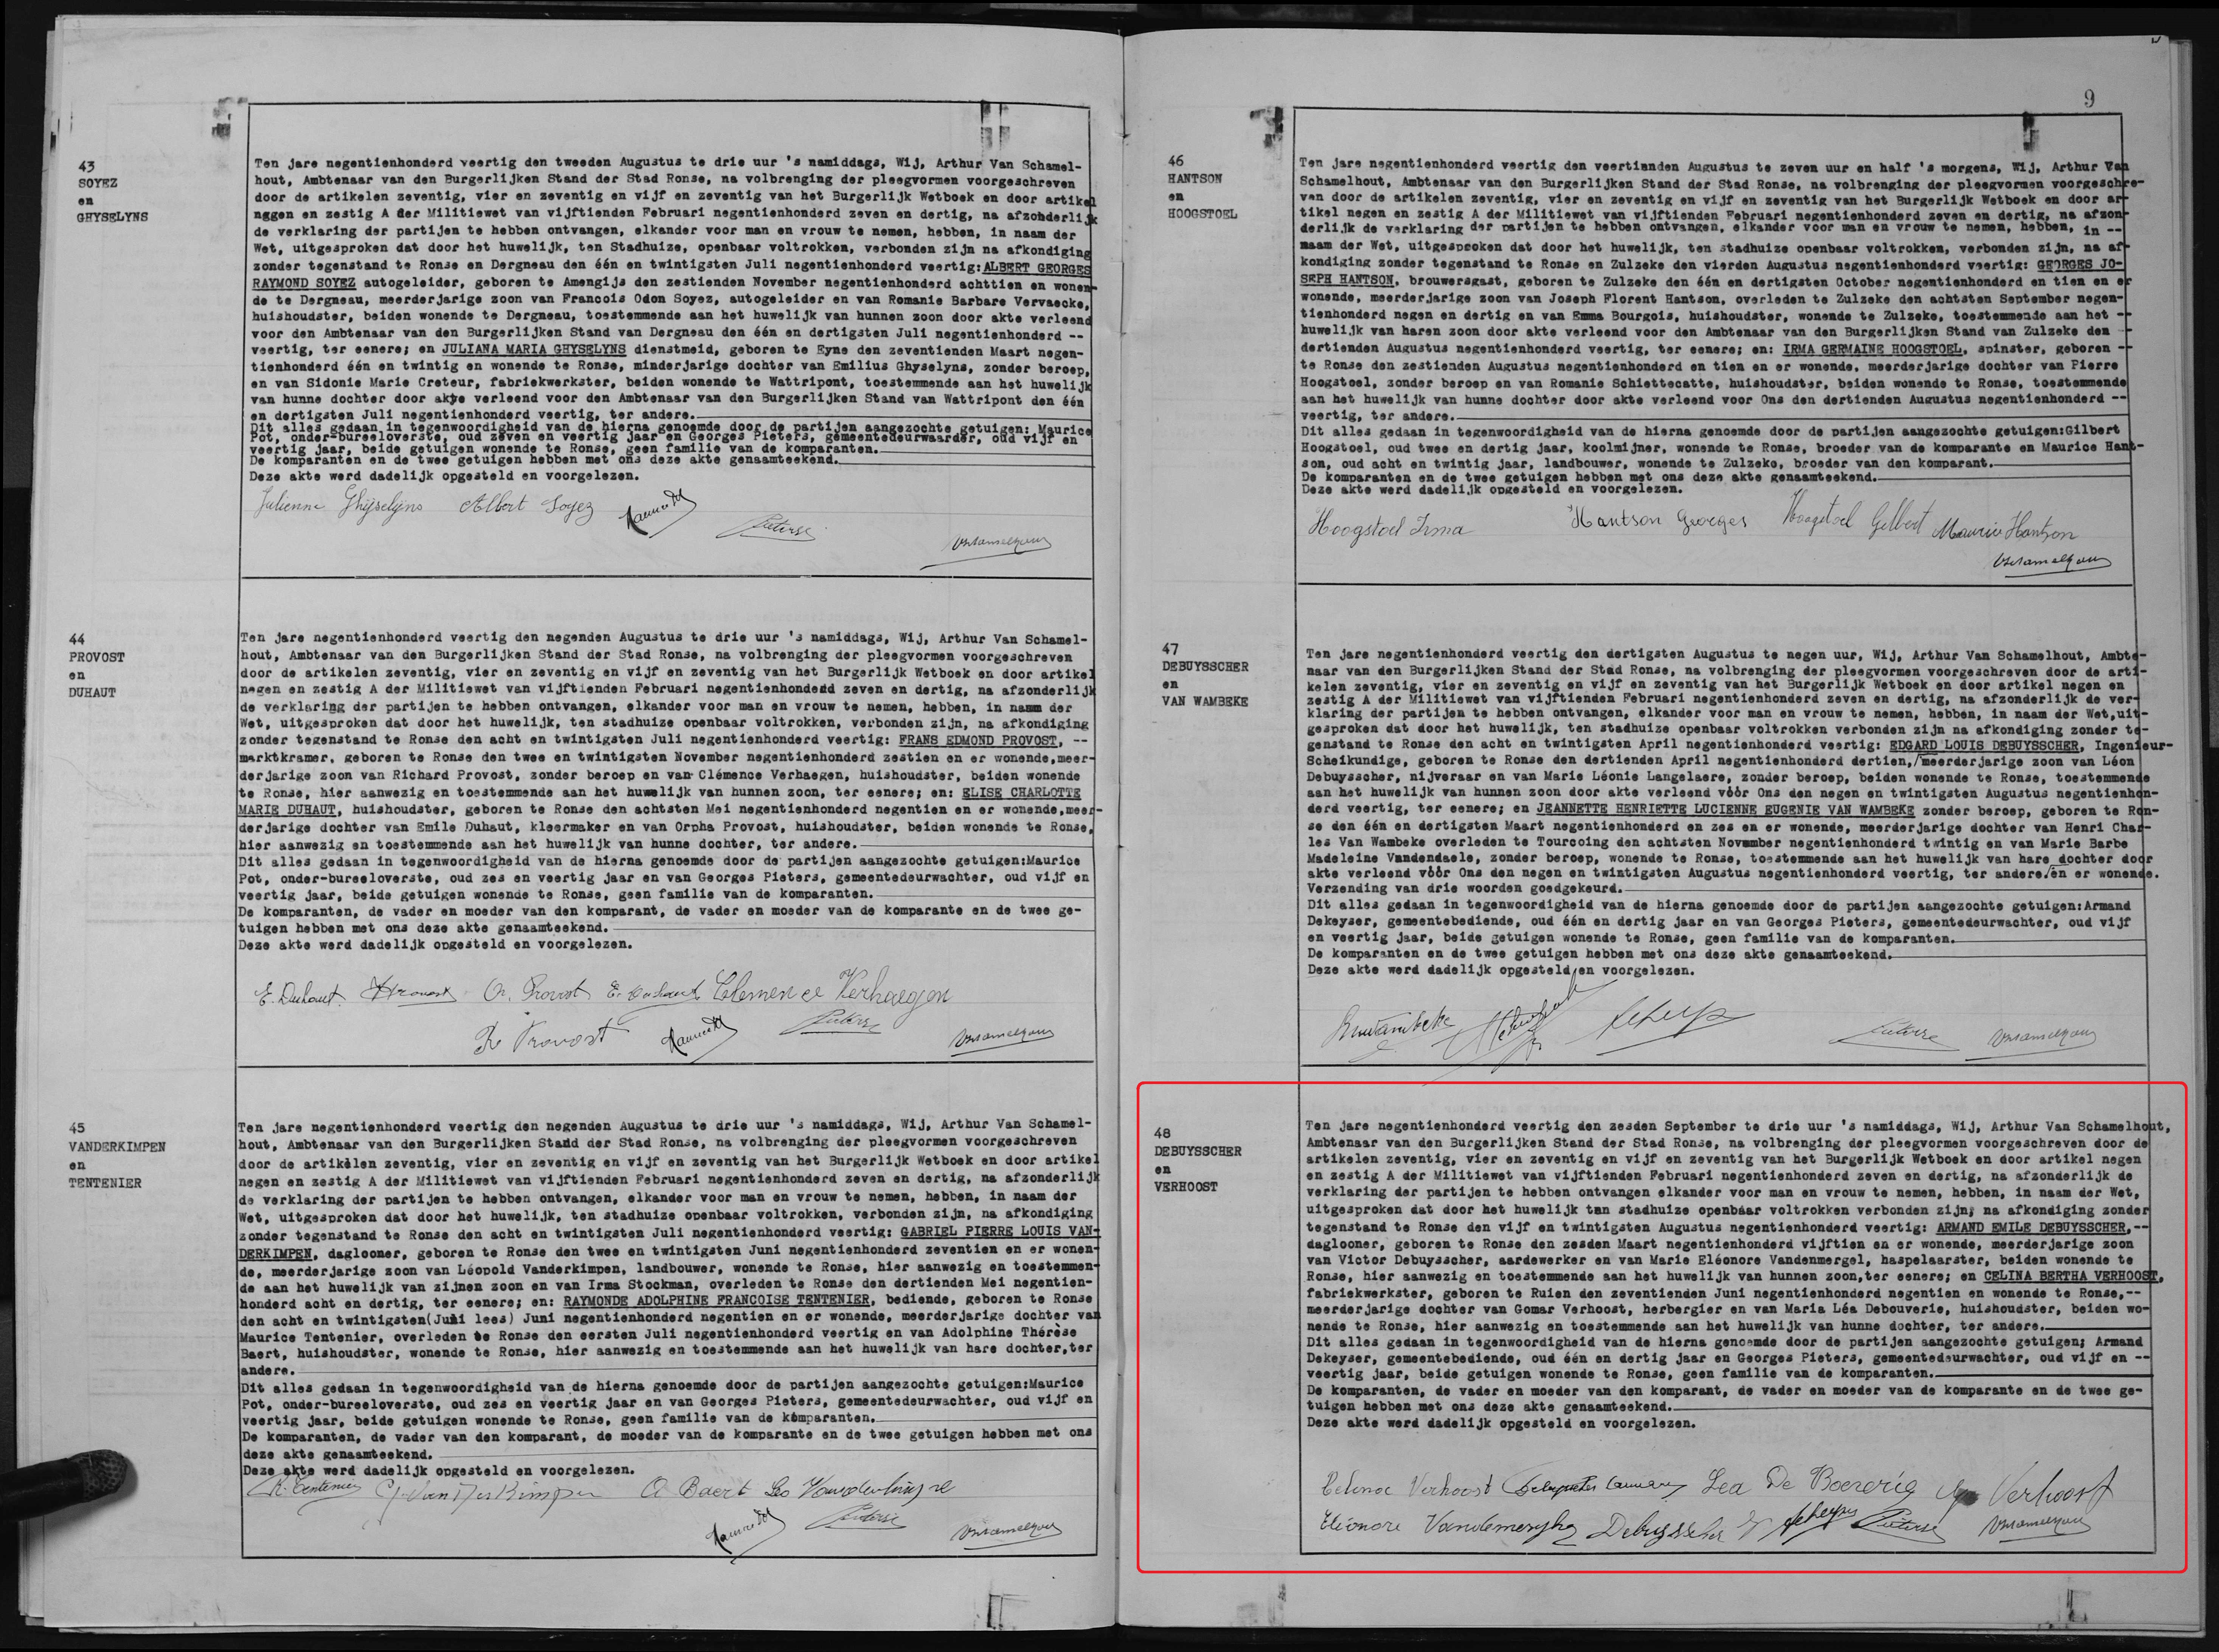 43
SOYEZ
en
GHYSELYNS
Ten jare negentienhonderd veertig den tweeden Augustus te drie uur 's namiddags, Wij, Arthur Van Schamel-
hout, Ambtenaar van den Burgerlijken Stand der Stad Ronse, na volbrenging der pleegvormen voorgeschreven
door de artikelen zeventig, vier en zeventig en vijf en zeventig van het Burgerlijk Wetboek en door artikel
nggen en zestig A der Militiewet van vijftienden Februari negentienhonderd zeven en dertig, na afzonderlijk
de verklaring der partijen te hebben ontvangen, elkander voor man en vrouw te nemen, hebben, in naam der
Wet, uitgesproken dat door het huwelijk, ten Stadhuize, openbaar voltrokken, verbonden zijn na afkondiging
zonder tegenstand te Ronse en Dergneau den één en twintigsten Juli negentienhonderd veertig: ALBERT GEORGES
RAYMOND SOYEZ autogeleider, geboren te Amengijs den zestienden November negentienhonderd achttien en wonen-
de te Dergneau, meerderjarige zoon van Francois Odon Soyez, autogeleider en van Romanie Barbare Vervaecke,
huishoudster, beiden wonende te Dergneau, toestemmende aan het huwelijk van hunnen zoon door akte verleend
voor den Ambtenaar van den Burgerlijken Stand van Dergneau den één en dertigsten Juli negentienhonderd --
veertig, ter eenere; en JULIANA MARIA GHYSELYNS dienstmeid, geboren te Eyne den zeventienden Maart negen-
tienhonderd één en twintig en wonende te Ronse, minderjarige dochter van Emilius Ghyselyns, zonder beroep,
en van Sidonie Marie Creteur, fabriekwerkster, beiden wonende te Wattripont, toestemmende aan het huwelijk
van hunne dochter door akte verleend voor den Ambtenaar van den Burgerlijken Stand van Wattripont den één
en dertigsten Juli negentienhonderd veertig, ter andere.
Dit alles gedaan in tegenwoordigheid van de hierna genoemde door de partijen aangezochte getuigen: Maurice
Pot, onder-bureeloverste, oud zeven en veertig jaar en Georges Pieters, gemeentedeurwaarder, oud vijf en
veertig jaar, beide getuigen wonende te Ronse, geen familie van de komparanten.
De komparanten en de twee getuigen hebben met ons deze akte genaamteekend.
Deze akte werd dadelijk opgesteld en voorgelezen.
Julienne Ghijselijns Albert Soyez
44
PROVOST
en
DUHAUT
Ten jare negentienhonderd veertig den negenden Augustus te drie uur 's namiddags, Wij, Arthur Van Schamel-
hout, Ambtenaar van den Burgerlijken Stand der Stad Ronse, na volbrenging der pleegvormen voorgeschreven
door de artikelen zeventig, vier en zeventig en vijf en zeventig van het Burgerlijk Wetboek en door artikel
negen en zestig A der Militiewet van vijftienden Februari negentienhonderd zeven en dertig, na afzonderlijk
de verklaring der partijen te hebben ontvangen, elkander voor man en vrouw te nemen, hebben, in naam der
Wet, uitgesproken dat door het huwelijk, ten stadhuize openbaar voltrokken, verbonden zijn, na afkondiging
zonder tegenstand te Ronse den acht en twintigsten Juli negentienhonderd veertig: FRANS EDMOND PROVOST, --
marktkramer, geboren te Ronse den twee en twintigsten November negentienhonderd zestien en er wonende,meer-
derjarige zoon van Richard Provost, zonder beroep en van Clémence Verhaegen, huishoudster, beiden wonende
te Ronse, hier aanwezig en toestemmende aan het huwelijk van hunnen zoon, ter eenere; en: ELISE CHARLOTTE
MARIE DUHAUT, huishoudster, geboren te Ronse den achtsten Mei negentienhonderd negentien en er wonende,meer-
derjarige dochter van Emile Duhaut, kleermaker en van Orpha Provost, huishoudster, beiden wonende te Ronse,
hier aanwezig en toestemmende aan het huwelijk van hunne dochter, ter andere.
Dit alles gedaan in tegenwoordigheid van de hierna genoemde door de partijen aangezochte getuigen:Maurice
Pot, onder-bureeloverste, oud zes en veertig jaar en van Georges Pieters, gemeentedeurwachter, oud vijf en
veertig jaar, beide getuigen wonende te Ronse, geen familie van de komparanten.
De komparanten, de vader en moeder van den komparant, de vader en moeder van de komparante en de twee ge-
tuigen hebben met ons deze akte genaamteekend.
Deze akte werd dadelijk opgesteld en voorgelezen.
E. Duhaut O. Provost Clemence Verhaegen
Provost
45
VANDERKIMPEN
en
TENTENIER
Ten jare negentienhonderd veertig den negenden Augustus te drie uur 's namiddags, Wij, Arthur Van Schamel-
hout, Ambtenaar van den Burgerlijken Stand der Stad Ronse, na volbrenging der pleegvormen voorgeschreven
door de artikelen zeventig, vier en zeventig en vijf en zeventig van het Burgerlijk Wetboek en door artikel
negen en zestig A der Militiewet van vijftienden Februari negentienhonderd zeven en dertig, na afzonderlijk
de verklaring der partijen te hebben ontvangen, elkander voor man en vrouw te nemen, hebben, in naam der
Wet, uitgesproken dat door het huwelijk, ten stadhuize openbaar voltrokken, verbonden zijn, na afkondiging
zonder tegenstand te Ronse den acht en twintigsten Juli negentienhonderd veertig: GABRIEL PIERRE LOUIS VAN-
DERKIMPEN, daglooner, geboren te Ronse den twee en twintigsten Juni negentienhonderd zeventien en er wonen-
de, meerderjarige zoon van Léopold Vanderkimpen, landbouwer, wonende te Ronse, hier aanwezig en toestemmen-
de aan het huwelijk van zijnen zoon en van Irma Stockman, overleden te Ronse den dertienden Mei negentien-
honderd acht en dertig, ter eenere; en: RAYMONDE ADOLPHINE FRANCOISE TENTENIER, bediende, geboren te Ronse
den acht en twintigsten(Juni lees) Juni negentienhonderd negentien en er wonende, meerderjarige dochter van
Maurice Tentenier, overleden te Ronse den eersten Juli negentienhonderd veertig en van Adolphine Thérèse
Baert, huishoudster, wonende te Ronse, hier aanwezig en toestemmende aan het huwelijk van hare dochter,ter
andere.
Dit alles gedaan in tegenwoordigheid van de hierna genoemde door de partijen aangezochte getuigen:Maurice
Pot, onder-bureeloverste, oud zes en veertig jaar en van Georges Pieters, gemeentedeurwachter, oud vijf en
veertig jaar, beide getuigen wonende te Ronse, geen familie van de komparanten.
De komparanten, de vader van den komparant, de moeder van de komparante en de twee getuigen hebben met ons
deze akte genaamteekend.
Deze akte werd dadelijk opgesteld en voorgelezen.
R. Tentenier G. Vanderkimpen A Baert Leo
9
46
HANTSON
en
HOOGSTOEL
Ten jare negentienhonderd veertig den veertienden Augustus te zeven uur en half 's morgens, Wij, Arthur Van
Schamelhout, Ambtenaar van den Burgerlijken Stand der Stad Ronse, na volbrenging der pleegvormen voorgeschre-
ven door de artikelen zeventig, vier en zeventig en vijf en zeventig van het Burgerlijk Wetboek en door ar-
tikel negen en zestig A der Militiewet van vijftienden Februari negentienhonderd zeven en dertig, na afzon-
derlijk de verklaring der partijen te hebben ontvangen, elkander voor man en vrouw te nemen, hebben, in --
naam der Wet, uitgesproken dat door het huwelijk, ten stadhuize openbaar voltrokken, verbonden zijn, na af-
kondiging zonder tegenstand te Ronse en Zulzeke den vierden Augustus negentienhonderd veertig: GEORGES JO-
SEPH HANTSON, brouwersgast, geboren te Zulzeke den één en dertigsten October negentienhonderd en tien en er
wonende, meerderjarige zoon van Joseph Florent Hantson, overleden te Zulzeke den achtsten September negen-
tienhonderd negen en dertig en van Emma Bourgois, huishoudster, wonende te Zulzeke, toestemmende aan het --
huwelijk van haren zoon door akte verleend voor den Ambtenaar van den Burgerlijken Stand van Zulzeke den --
dertienden Augustus negentienhonderd veertig, ter eenere; en: IRMA GERMAINE HOOGSTOEL, spinster, geboren --
te Ronse den zestienden Augustus negentienhonderd en tien en er wonende, meerderjarige dochter van Pierre
Hoogstoel, zonder beroep en van Romanie Schiettecatte, huishoudster, beiden wonende te Ronse, toestemmende
aan het huwelijk van hunne dochter door akte verleend voor Ons den dertienden Augustus negentienhonderd --
veertig, ter andere.
Dit alles gedaan in tegenwoordigheid van de hierna genoemde door de partijen aangezochte getuigen:Gilbert
Hoogstoel, oud twee en dertig jaar, koolmijner, wonende te Ronse, broeder van de komparante en Maurice Hant-
son, oud acht en twintig jaar, landbouwer, wonende te Zulzeke, broeder van den komparant.
De komparanten en de twee getuigen hebben met ons deze akte genaamteekend.
Deze akte werd dadelijk opgesteld en voorgelezen.
Hoogstoel Irma Hantson Georges Hoogstoel Gilbert Maurice Hantson
47
DEBUYSSCHER
en
VAN WAMBEKE
Ten jare negentienhonderd veertig den dertigsten Augustus te negen uur, Wij, Arthur Van Schamelhout, Ambte-
naar van den Burgerlijken Stand der Stad Ronse, na volbrenging der pleegvormen voorgeschreven door de arti-
kelen zeventig, vier en zeventig en vijf en zeventig van het Burgerlijk Wetboek en door artikel negen en
zestig A der Militiewet van vijftienden Februari negentienhonderd zeven en dertig, na afzonderlijk de ver-
klaring der partijen te hebben ontvangen, elkander voor man en vrouw te nemen, hebben, in naam der Wet,uit-
gesproken dat door het huwelijk, ten stadhuize openbaar voltrokken verbonden zijn na afkondiging zonder te-
genstand te Ronse den acht en twintigsten April negentienhonderd veertig: EDGARD LOUIS DEBUYSSCHER, Ingenieur-
Scheikundige, geboren te Ronse den dertienden April negentienhonderd dertien,/meerderjarige zoon van Léon
Debuysscher, nijveraar en van Marie Léonie Langelaere, zonder beroep, beiden wonende te Ronse, toestemmende
aan het huwelijk van hunnen zoon door akte verleend vóór Ons den negen en twintigsten Augustus negentienhon-
derd veertig, ter eenere; en JEANNETTE HENRIETTE LUCIENNE EUGENIE VAN WAMBEKE zonder beroep, geboren te Ron-
se den één en dertigsten Maart negentienhonderd en zes en er wonende, meerderjarige dochter van Henri Char-
les Van Wambeke overleden te Tourcoing den achtsten November negentienhonderd twintig en van Marie Barbe
Madeleine Vandendaele, zonder beroep, wonende te Ronse, toestemmende aan het huwelijk van hare dochter door
akte verleend vóór Ons den negen en twintigsten Augustus negentienhonderd veertig, ter andere./en er wonende.
Verzending van drie woorden goedgekeurd.
Dit alles gedaan in tegenwoordigheid van de hierna genoemde door de partijen aangezochte getuigen:Armand
Dekeyser, gemeentebediende, oud één en dertig jaar en van Georges Pieters, gemeentedeurwachter, oud vijf
en veertig jaar, beide getuigen wonende te Ronse, geen familie van de komparanten.
De komparanten en de twee getuigen hebben met ons deze akte genaamteekend.
Deze akte werd dadelijk opgesteld en voorgelezen.
48
DEBUYSSCHER
en
VERHOOST
Ten jare negentienhonderd veertig den zesden September te drie uur 's namiddags, Wij, Arthur Van Schamelhout,
Ambtenaar van den Burgerlijken Stand der Stad Ronse, na volbrenging der pleegvormen voorgeschreven door de
artikelen zeventig, vier en zeventig en vijf en zeventig van het Burgerlijk Wetboek en door artikel negen
en zestig A der Militiewet van vijftienden Februari negentienhonderd zeven en dertig, na afzonderlijk de
verklaring der partijen te hebben ontvangen elkander voor man en vrouw te nemen, hebben, in naam der Wet,
uitgesproken dat door het huwelijk tan stadhuize openbaar voltrokken verbonden zijn; na afkondiging zonder
tegenstand te Ronse den vijf en twintigsten Augustus negentienhonderd veertig: ARMAND EMILE DEBUYSSCHER,--
daglooner, geboren te Ronse den zesden Maart negentienhonderd vijftien en er wonende, meerderjarige zoon
van Victor Debuysscher, aardewerker en van Marie Eléonore Vandenmergel, haspelaarster, beiden wonende te
Ronse, hier aanwezig en toestemmende aan het huwelijk van hunnen zoon,ter eenere; en CELINA BERTHA VERHOOST,
fabriekwerkster, geboren te Ruien den zeventienden Juni negentienhonderd negentien en wonende te Ronse,--
meerderjarige dochter van Gomar Verhoost, herbergier en van Maria Léa Debouverie, huishoudster, beiden wo-
nende te Ronse, hier aanwezig en toestemmende aan het huwelijk van hunne dochter, ter andere.
Dit alles gedaan in tegenwoordigheid van de hierna genoemde door de partijen aangezochte getuigen; Armand
Dekeyser, gemeentebediende, oud één en dertig jaar en Georges Pieters, gemeentedeurwachter, oud vijf en --
veertig jaar, beide getuigen wonende te Ronse, geen familie van de komparanten.
De komparanten, de vader en moeder van den komparant, de vader en moeder van de komparante en de twee ge-
tuigen hebben met ons deze akte genaamteekend.
Deze akte werd dadelijk opgesteld en voorgelezen.
Verhoost Lea De Verhoost
Eléonore Debuysscher